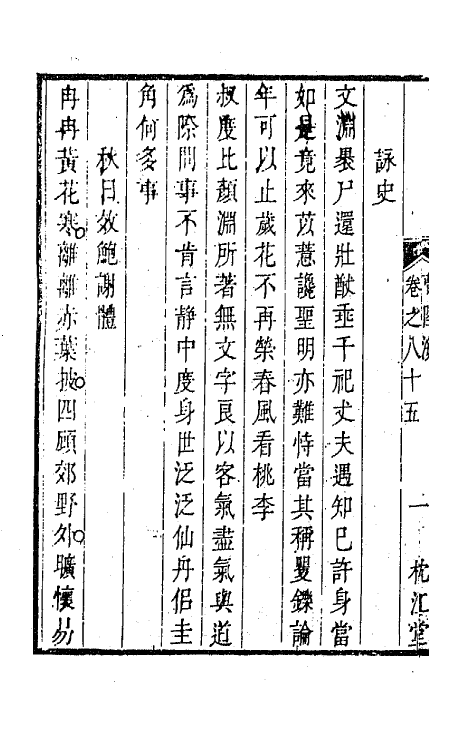 卷之八十五 一 枕江堂
詠史
文淵暴尸還壯猷垂千祀丈夫遇知已許身當
如是竟來苡薏讒聖明亦難恃當其稱矍鑠論
年可以止歲花不再榮春風看桃李
叔度比顏淵所著無文字良以客氣盡氣與道
為際間事不肯言靜中度身世泛泛仙舟侣圭
角何多事
秋日效鮑謝體
冉冉黃花寒離離赤葉披四顧郊野外曠懷易